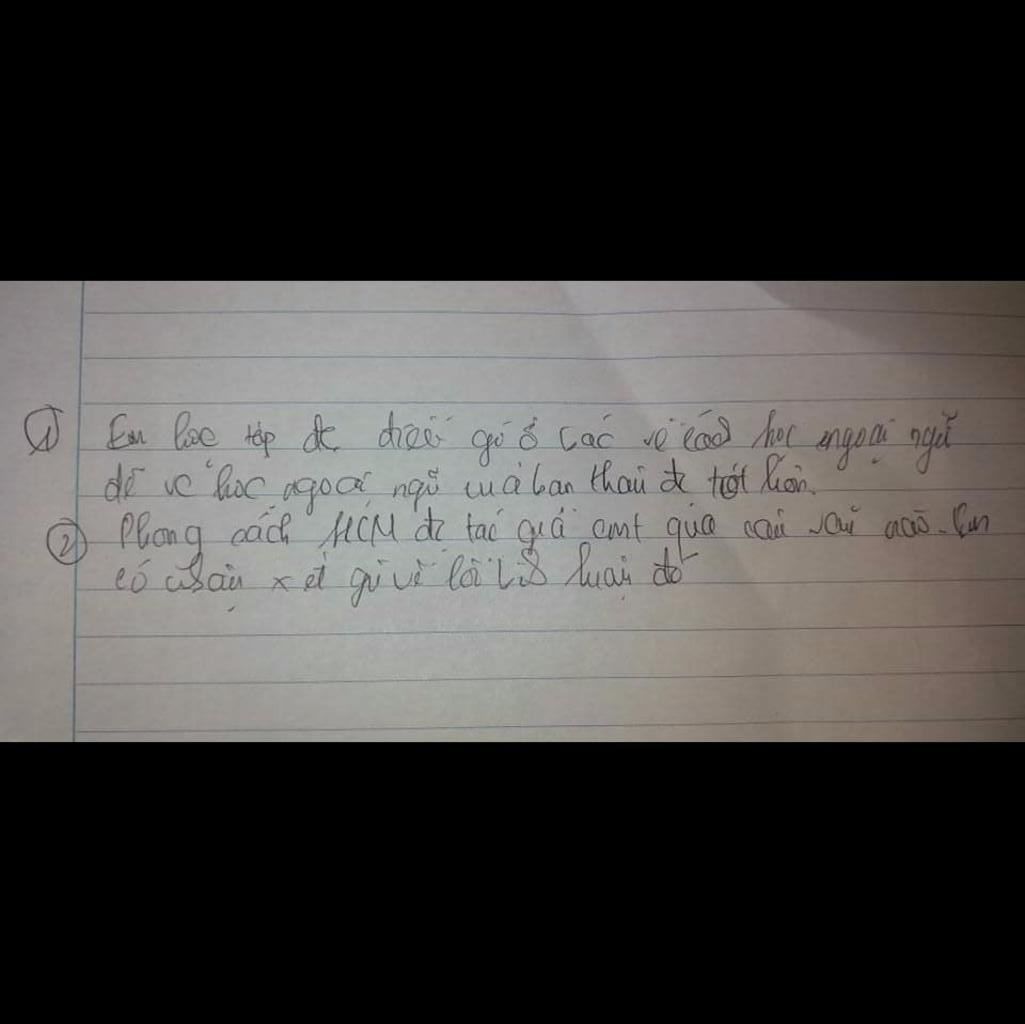 ① Em học tập đc điều gì ở Bác về cách học ngoại ngữ
để vc học ngoại ngữ của bản thân đc tốt hơn.
② Phong cách HCM đc tác giả cmt qua câu văn nào. Em
có nhận xét gì về lời bình luận đó